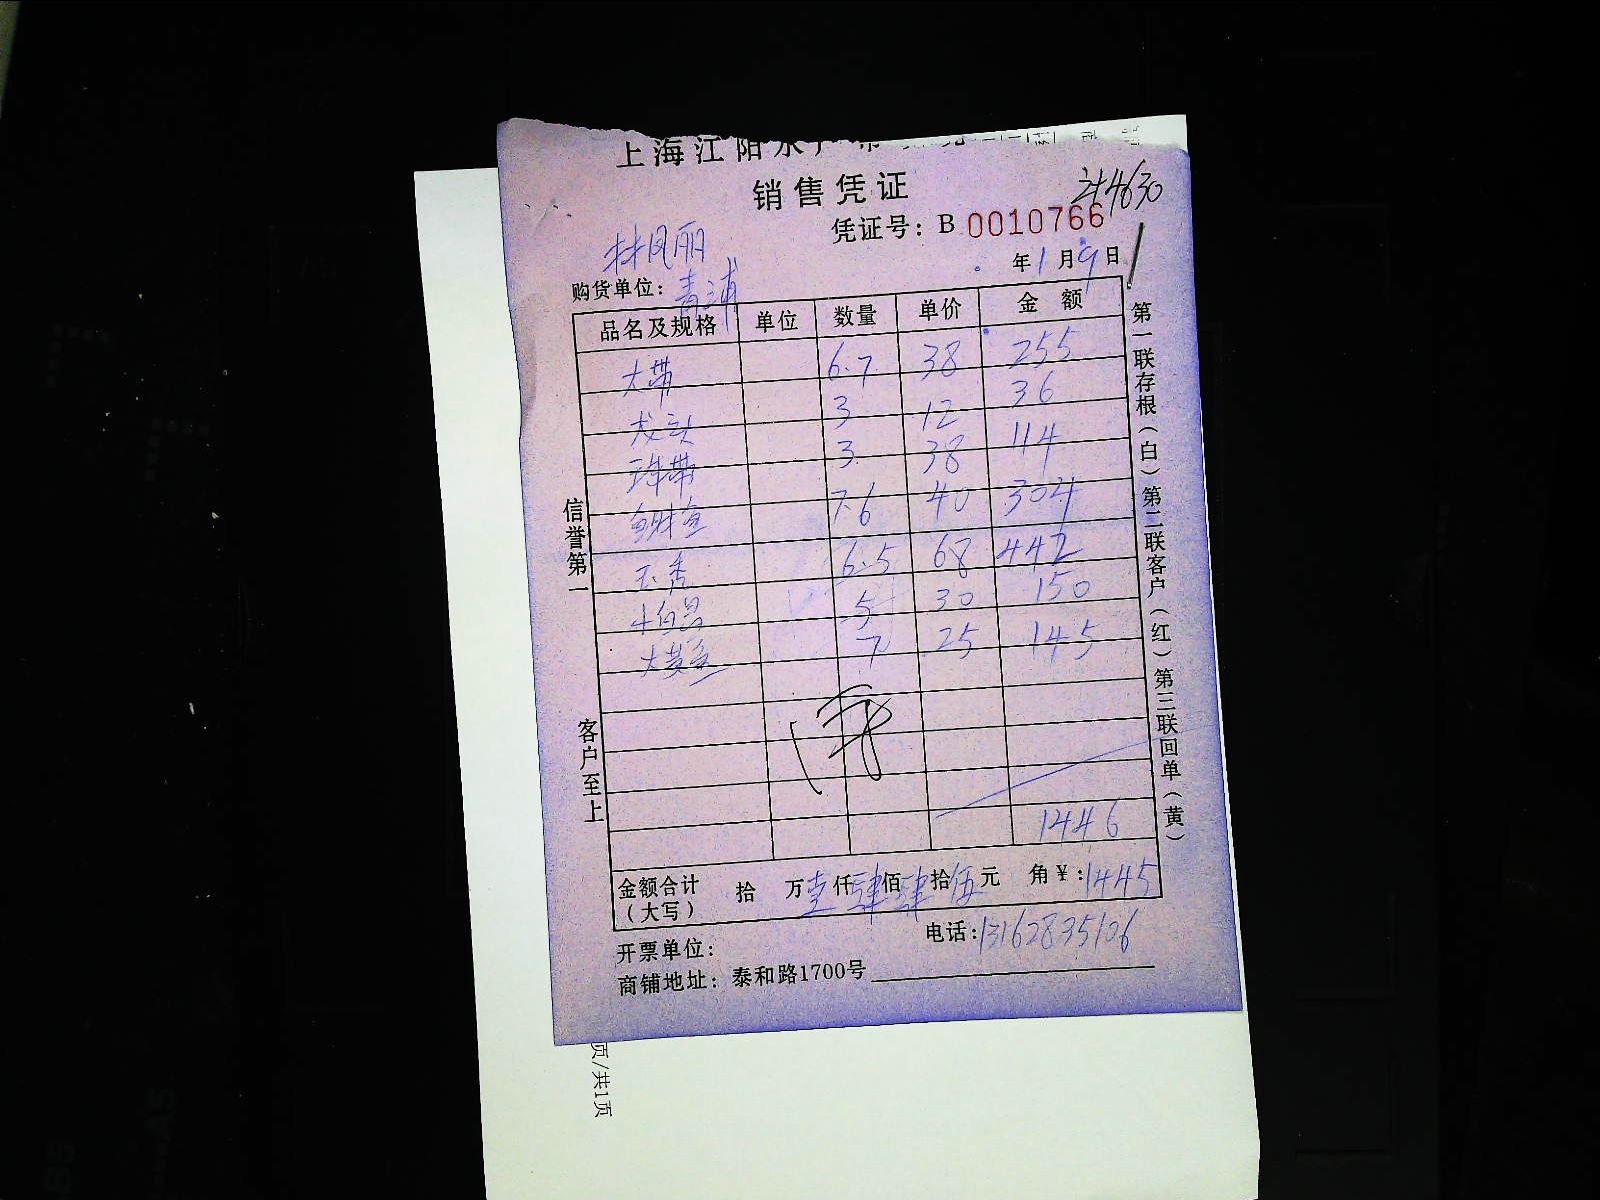 上海江阳水产
销售凭证
计4630
凭证号：B 0010766
林凤丽
年1月9日
购货单位：青浦
品名及规格 单位 数量 单价 金额
大带 6.7 38 255
龙头 3 12 36
珠带 3 38 114
鱼 7.6 40 304
玉秃 6.5 68 442
小白 5 30 150
大黄鱼 7 25 145
1446
金额合计（大写） 拾 万壹仟肆佰肆拾伍元 角￥：1445
电话：13162835106
开票单位：
商铺地址：泰和路1700号
信誉第一
客户至上
第一联存根（白）第二联客户（红）第三联回单（黄）
页/共1页